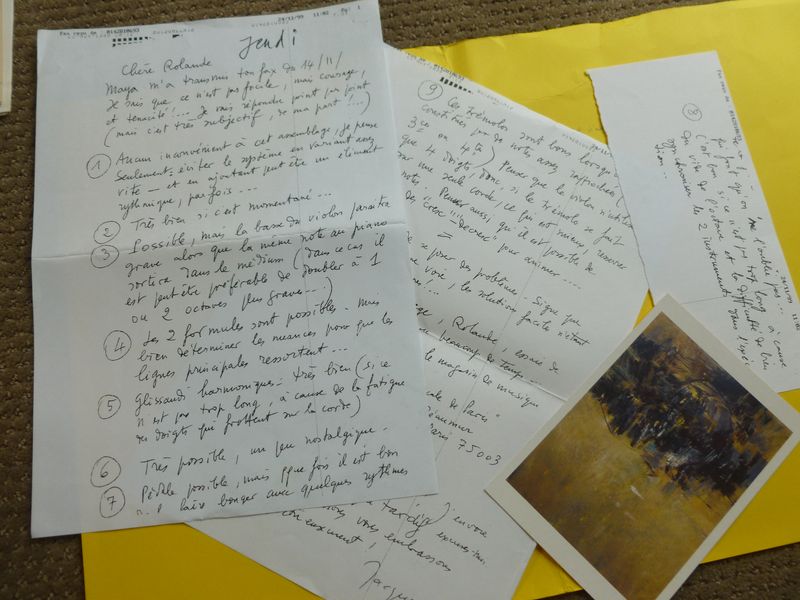 Fax reçu de : 0142010693
24/11/99 11:02 Pg: 1
Jeudi
Chère Rolande
Maya m'a transmis ton fax du 14/11/
Je sais que ce n'est pas facile, mais courage,
et tenacité!... Je vais répondre point par point
(mais c'est très subjectif, de ma part!...)
1 Aucun inconvénient à cet assemblage, je pense
seulement: éviter le système en variant assez
vite – et en ajoutant peut être un élément
rythmique, parfois...
2 Très bien si c'est momentané...
3 Possible, mais la base du violon paraitra
grave alors que la même note au piano
sortira dans le medium (dans ce cas il
est peut être préférable de doubler à 1
ou 2 octaves plus graves...)
4 Les 2 formules sont possibles. Mais
bien déterminer les nuances pour que les
lignes principales ressortent...
5 Glissandi harmoniques: très bien (si ce
n'est pas trop long, à cause de la fatigue
des doigts qui frottent sur la corde)
6 Très possible, un peu nostalgique.
7 Pédale possible, mais qque fois il est bon
faire bouger avec quelques rythmes
9 Ces trémolos sont bons lorsqu'
construits par de notes assez rapprochées (
3ce ou 4te) Penser que le violon n'utilise
que 4 doigts, donc si le trémolo se fait
sur une seule corde, ce qui est mieux, resserrer
notes. Penser aussi qu'il est possible de
des "cresc - decresc" pour animer....
se poser des problèmes. Signe que
voie, les solutions faciles n'étant
!...
Rolande, essaie de
beaucoup de temps...
le magasin de musique
de Paris"
Réaumur
Paris 75003
j'envoie
tardif excuses-m
vous embrassons
Fax reçu de
8
qu'on me l'oublie pas...
C'est bon si ce n'est pas trop long à cause
du vide de l'octave et la difficulté de bien
des 2 instruments dans l'